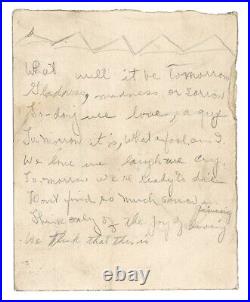 What will it be tomorrow
Gladness, madness, or sorrow
To-day we love, a guy
Tomorrow it is, What a fool am I
We love we laugh we cry
Tomorrow we're ready to die
Don't find so much
Think only of the joy of
We think that this is
thehistoryinpics.com